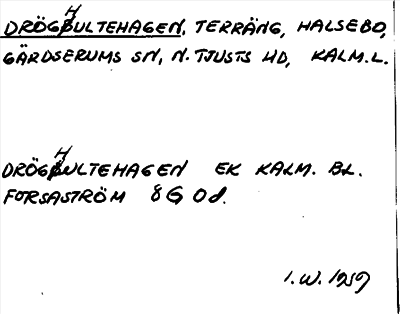 DRÖGHULTEHAGEN, TERRÄNG, HALSEBO,
GÄRDSERUMS SN, N. TJUSTS HD, KALM.L.
DRÖGHULTEHAGEN EK KALM. BL.
FORSASTRÖM 8G 0d.
I.W. 1959